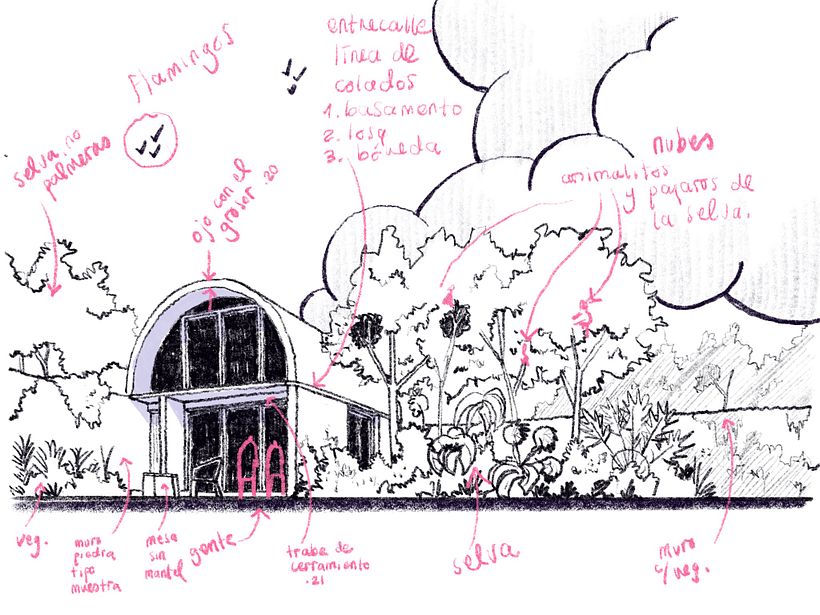 Flamingos
entrecalle
línea de
colados
1. basamento
2. losa
3. bóveda
selva no
palmeras
ojo con el
grosor .20
nubes
animalitos
y pajaros de
la selva.
veg.
muro
piedra
tipo
muestra
mesa
sin
mantel
gente
trabe de
cerramiento
.21
selva
muro
c/veg.